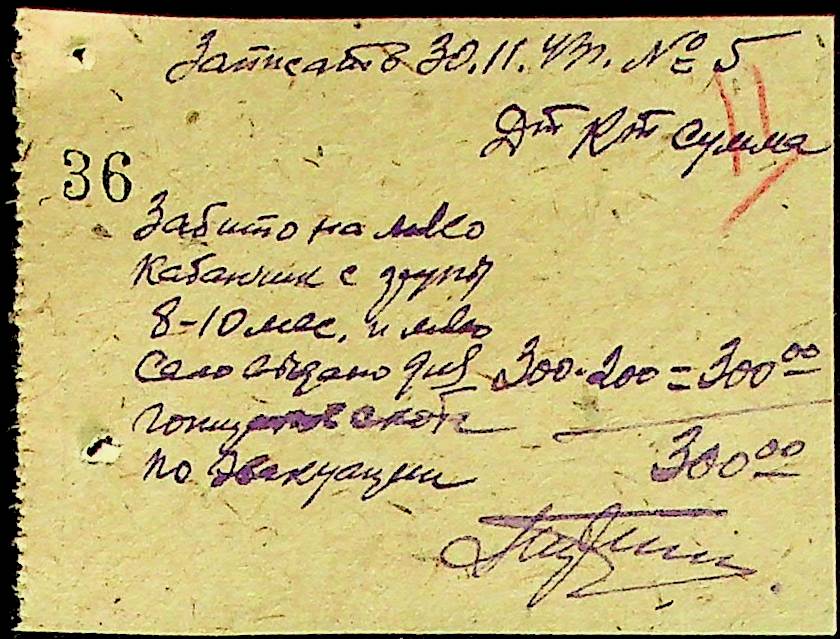 Записать 30.11.41г. № 5
Дт Кт сумма
36
Забито на мясо
кабанчик с групы
8-10 мес. и мясо
сало выдано для 300 · 200 = 300 00
скот
по эвакуации 300 00